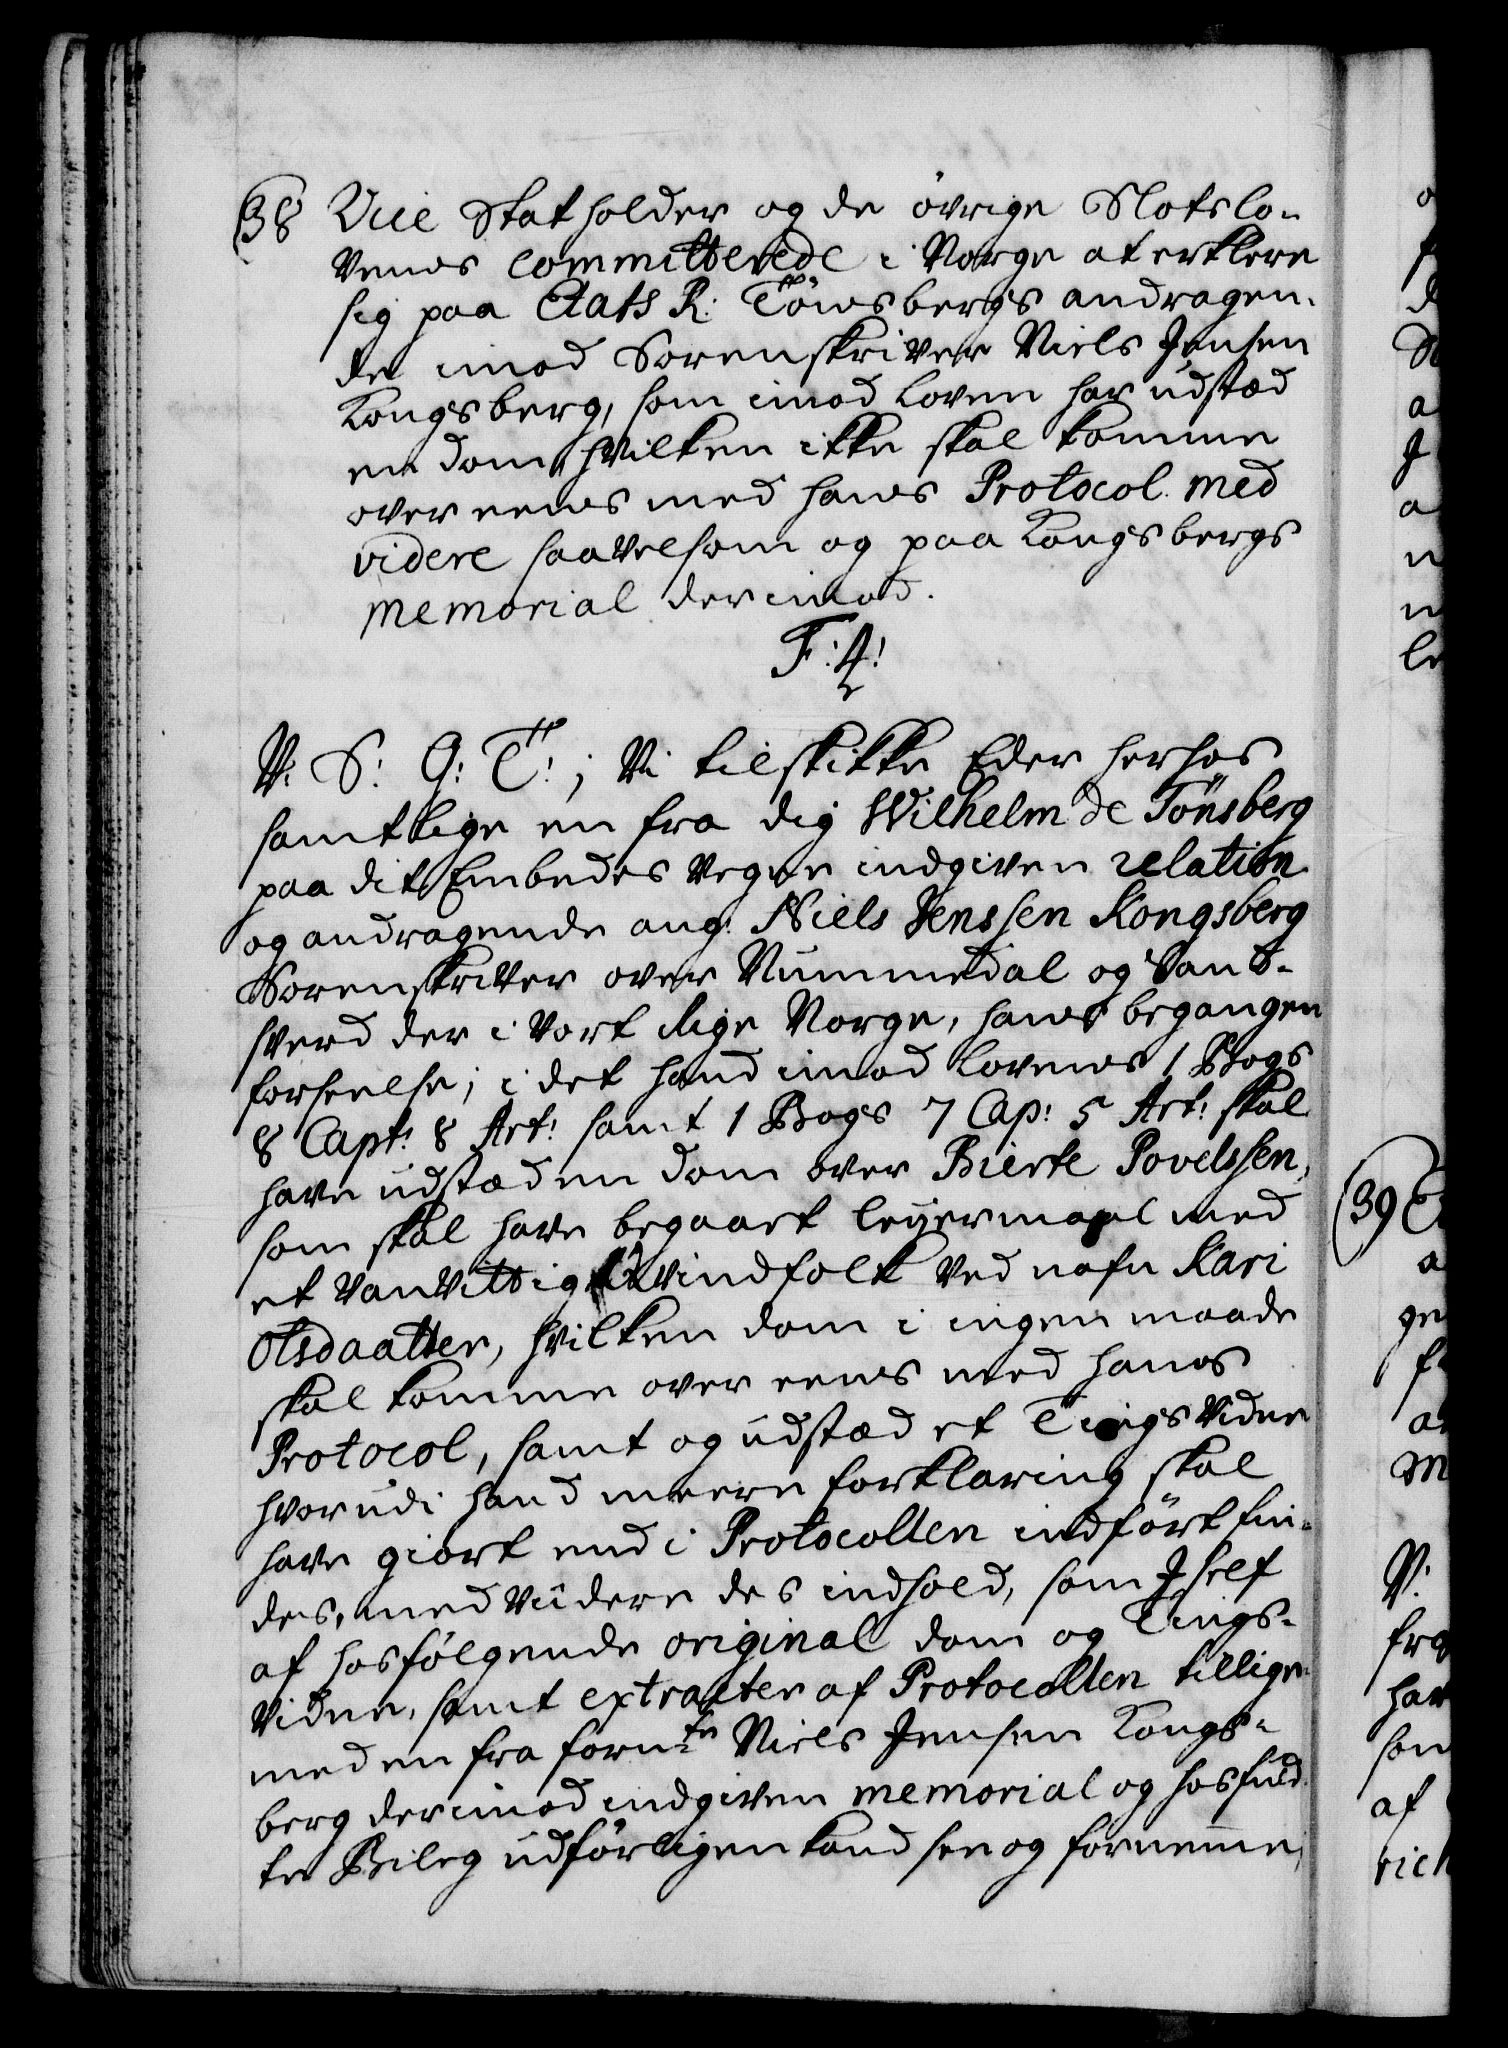 38 Vice Statholder og de övrige Slotslo-
vens committerede i Norge at erklere
sig paa Etats R: Tönsbergs andragen-
de imod Sorenskriver Niels Jensen
Kongsberg, som imod loven har udstæd
en dom, hvilken ikke skal komme
over eens med hans Protocol med
videre saavelsom og paa Kongsbergs
memorial derimod.
F: 4:
V: S: G: T:; Vi tilskikke Eder herhos
samtlige en fra dig Wilhelm de Tönsberg
paa dit Embedes vegne indgiven relation
og andragende ang: Niels Jenssen Kongsberg
Sorenskriver over Nummedal og Sand-
sverd der i Vort Rige Norge, hans begangen
forseelse; i det hand imod Lovens 1 Bogs
8 Capt: 8 Art: samt 1 Bogs 7 Cap: 5 Art: skal
have udstæd en dom over Bierte Povelssen,
som skal have begaaet leyermaal med
et vanvittig qvindfolk ved nafn Kari
Olsdaatter, hvilken dom i ingen maade
skal komme over eens med hans
Protocol, samt og udstæd et Tings vidne
hvorudi hand meere forklaring skal
have giort end i Protocollen indfört fin-
des, med viidere des indhold, som I self
af hosfölgende original dom og Tings-
vidne, samt extracter af Protocollen tillige
med en fra forn:te Niels Jensen Kongs-
berg derimod indgiven memorial og hosfuld-
te Beileg udförligen kand see og fornemme,
39